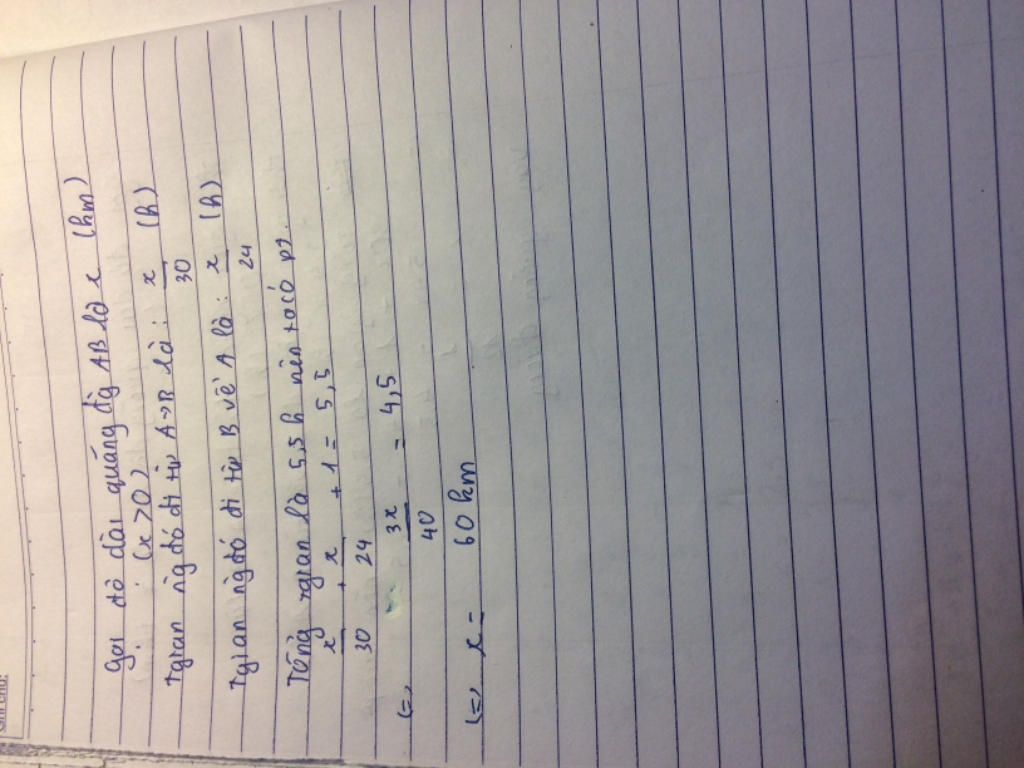 gọi độ dài quãng đg AB là x (km)
(x > 0)
Tgian ng đó đi từ A→B là : x/30 (h)
Tgian ng đó đi từ B về A là : x/24 (h)
Tổng tgian là 5,5 h nên ta có pt.
x/30 + x/24 + 1 = 5,5
(=) 3x/40 = 4,5
(=) x = 60 km